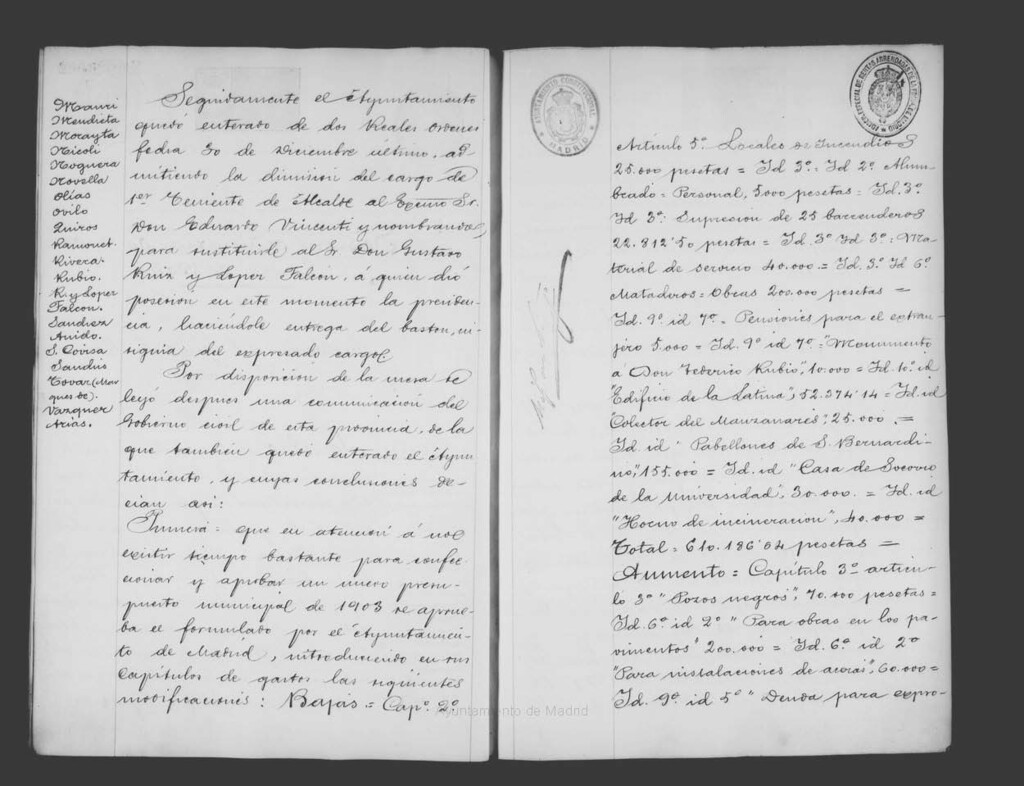 Mauri
Mendieta
Morayta
Nicoli
Noguera
Novella
Olías
Ovilo
Quiros
Ramonet.
Rivera.
Rubio.
R. y Lopez
Falcon.
Sanchez
Anido.
S. Covisa
Sanchis
Tovar (Mar
ques de).
Vazquez
Arias.
Seguidamente el Ayuntamiento
quedó enterado de dos Reales ordenes
fecha 30 de Diciembre último, ad
mitiendo la dimision del cargo de
1er Teniente de Alcalde al Excmo Sr.
Don Eduardo Vincenti y nombrando,
para sustituirle al Sr Don Gustavo
Ruiz y Lopez Falcon, á quien dió
posesion en este momento la presiden-
cia, haciéndole entrega del baston, in-
signia del expresado cargo.
Por disposición de la mesa se
leyó despues una comunicación del
Gobierno civil de esta provincia, de la
que tambien quedó enterado el Ayun
tamiento, y cuyas conclusiones de-
cian asi:
Primera = que en atención á no
existir tiempo bastante para confec-
cionar y aprobar un nuevo presu-
puesto municipal de 1903 se aprue-
ba el formulado por el Ayuntamien-
to de Madrid, introduciendo en sus
Capítulos de gastos las siguientes
modificaciones: Bajas = Capº. 2º
AYUNTAMIENTO CONSTITUCIONAL
MADRID
Artículo 5º Locales de Incendios
25.000 pesetas = Id 3º = Id 2º Alum-
brado = Personal, 5.000 pesetas = Id. 3º
Id 3º = Supresion de 25 barrenderos
22.812'50 pesetas = Id. 3º Id 3º = Ma-
terial de servicio 40.000 = Id. 3º Id 6º
Mataderos = Obras 200.000 pesetas =
Id. 9º id 7º = Pensiones para el extran-
jero 5.000 = Id. 9º id 7º = "Monumento
á Don Federico Rubio", 10.000 = Id. 10º id
"Edificio de la Latina", 52.374'14 = Id. id
"Colector del Manzanares", 25.000. =
Id. id "Pabellones de S. Bernardi-
no", 155.000 = Id. id "Casa de Socorro
de la Universidad", 30.000. = Id. id
"Horno de incineracion", 40.000 =
Total = 610.186'64 pesetas =
Aumento = Capítulo 3º artícu-
lo 3º "Pozos negros", 70.000 pesetas =
Id. 6º id 2º "Para obras en los pa-
vimentos" 200.000 = Id. 6º id 2º
"Para instalaciones de aceras", 60.000 =
Id. 9º id 5º "Deuda para expro-
Ayuntamiento de Madrid